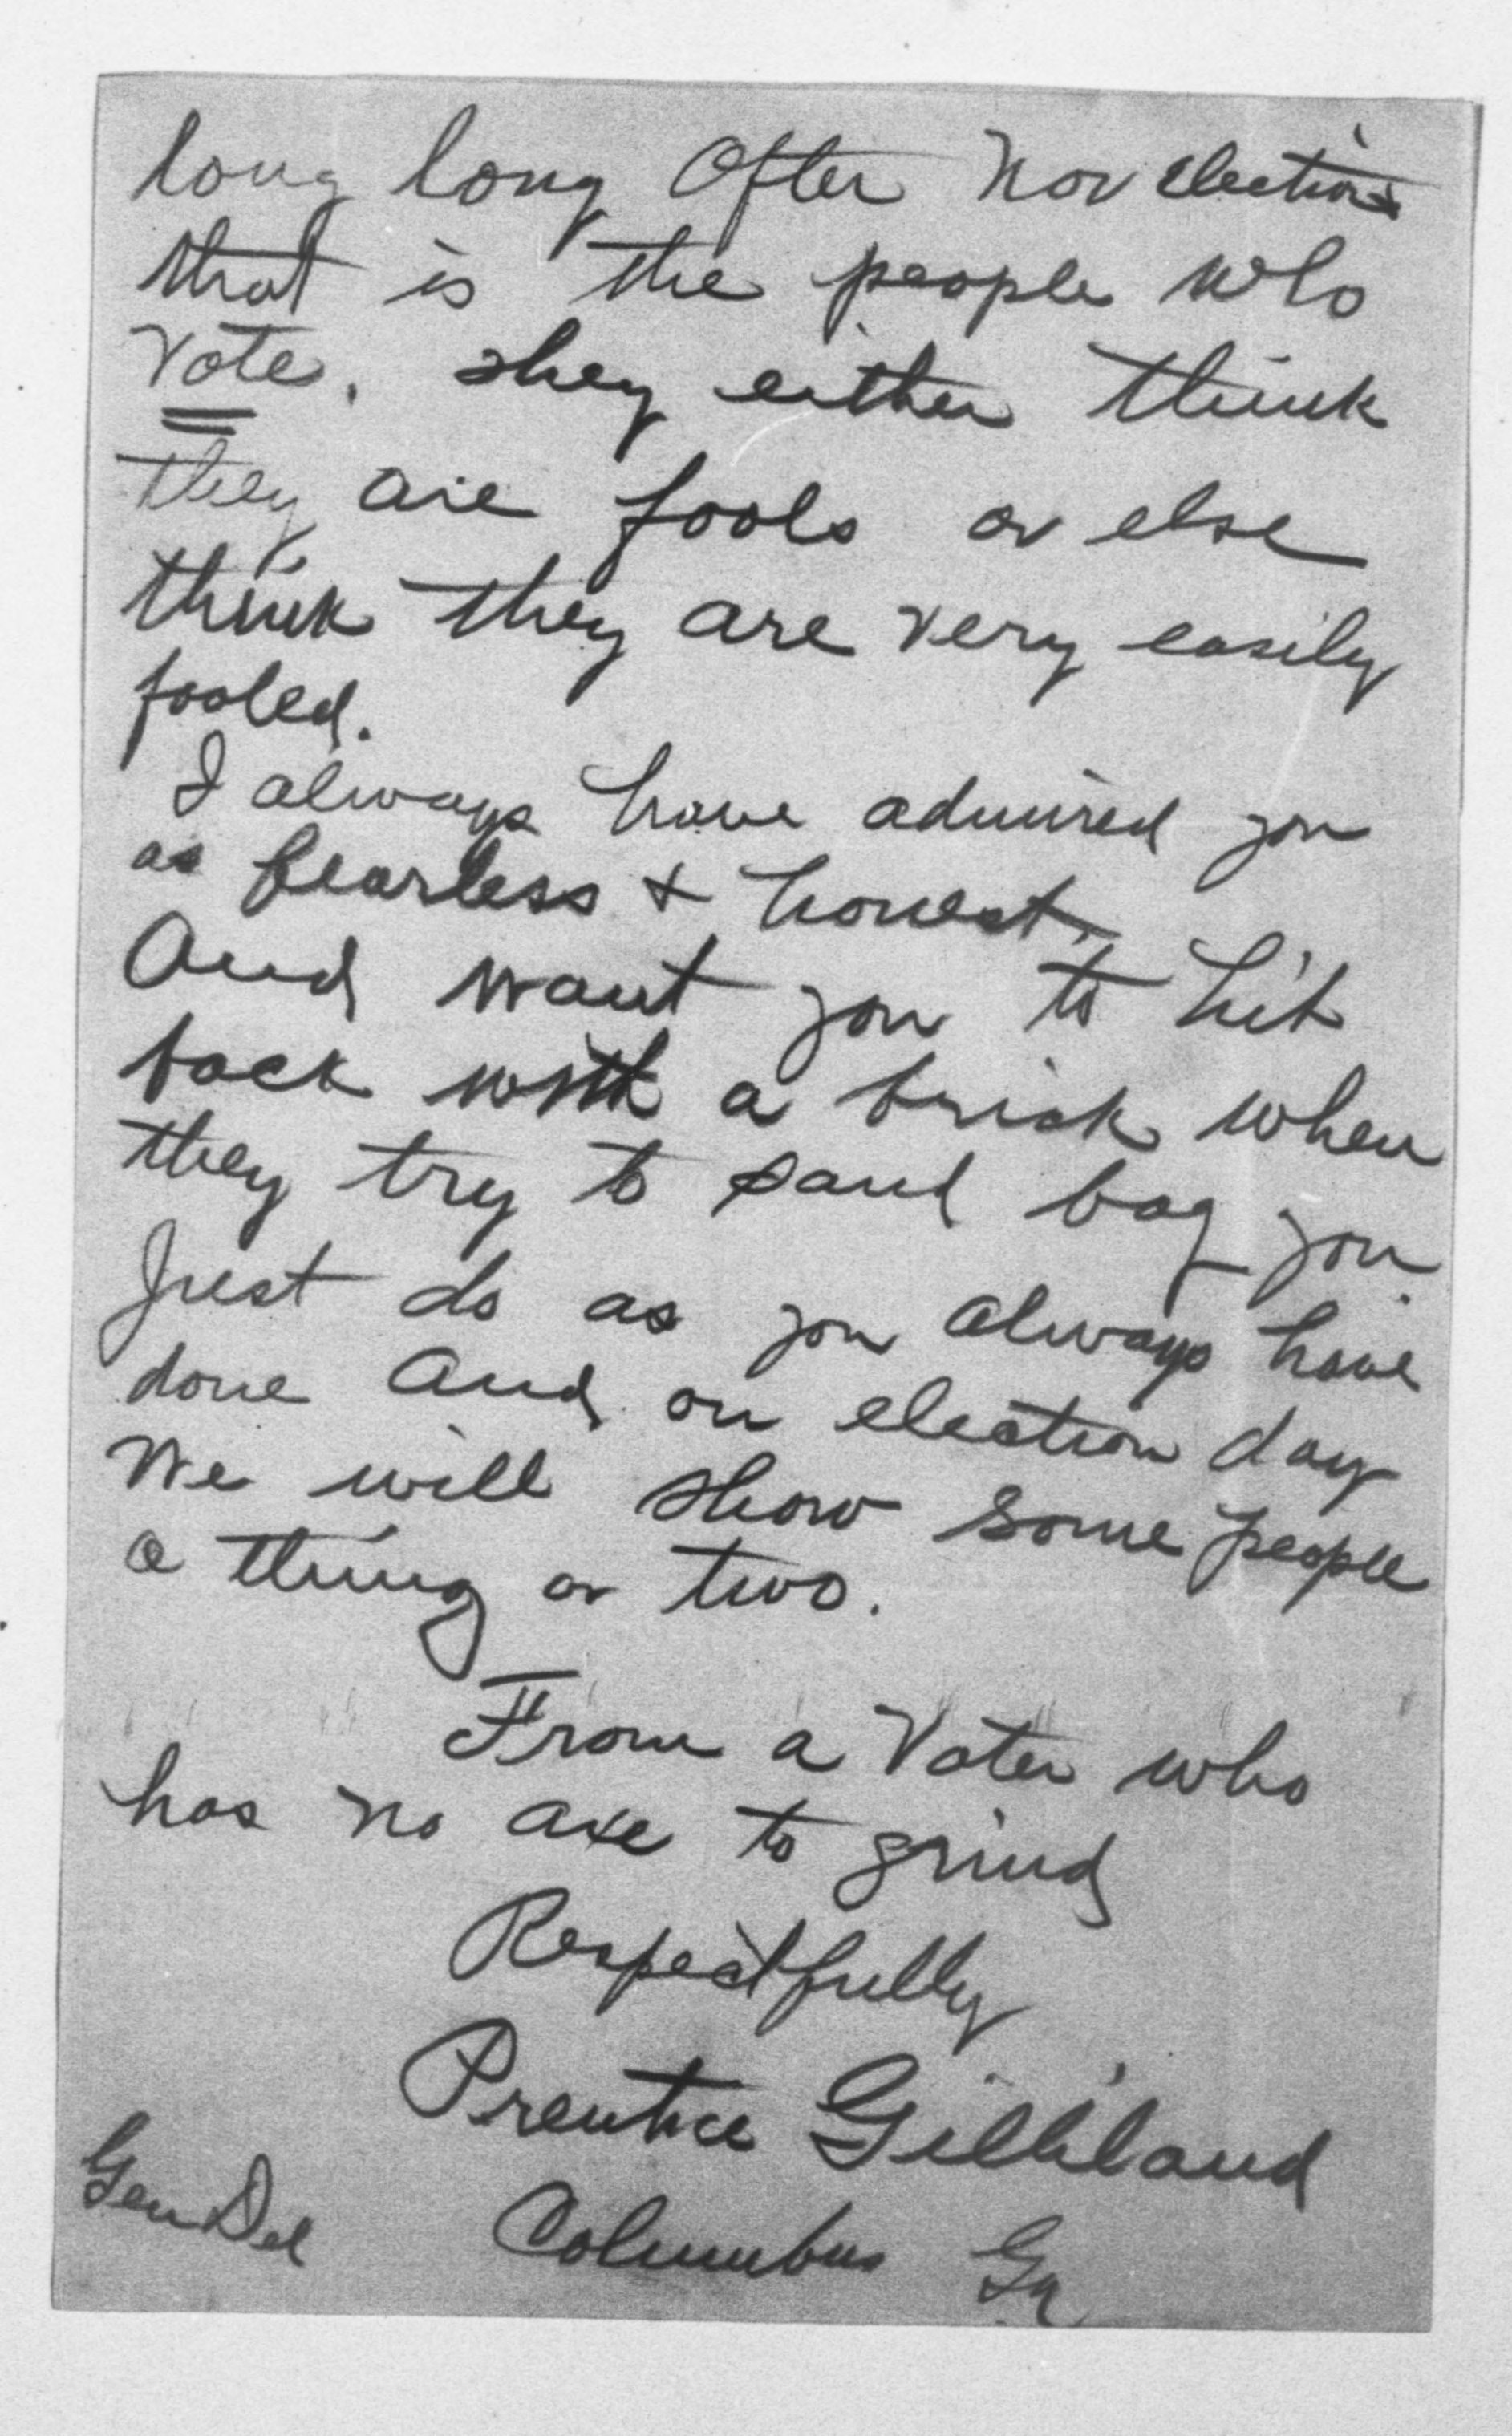 long long after Nov election
that is the people who
vote. They either think
they are fools or else
think they are very easily
fooled.
I always have admired you
as fearless + honest.
And want you to hit
back with a brick when
they try to sand bag you.
Just do as you always have
done and on election day
We will show some people
a thing or two.
From a Voter who
has no axe to grind
Respectfully
Prentice Gilliland
Gen Del Columbus Ga